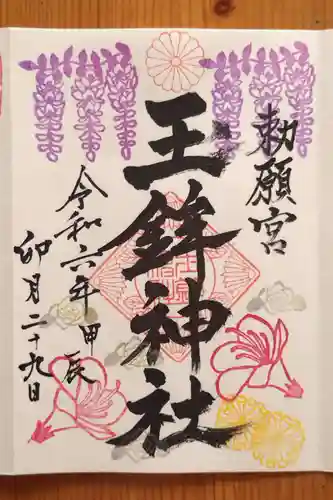 勅願宮
王鉾神社
令和六年甲辰
卯月二十九日